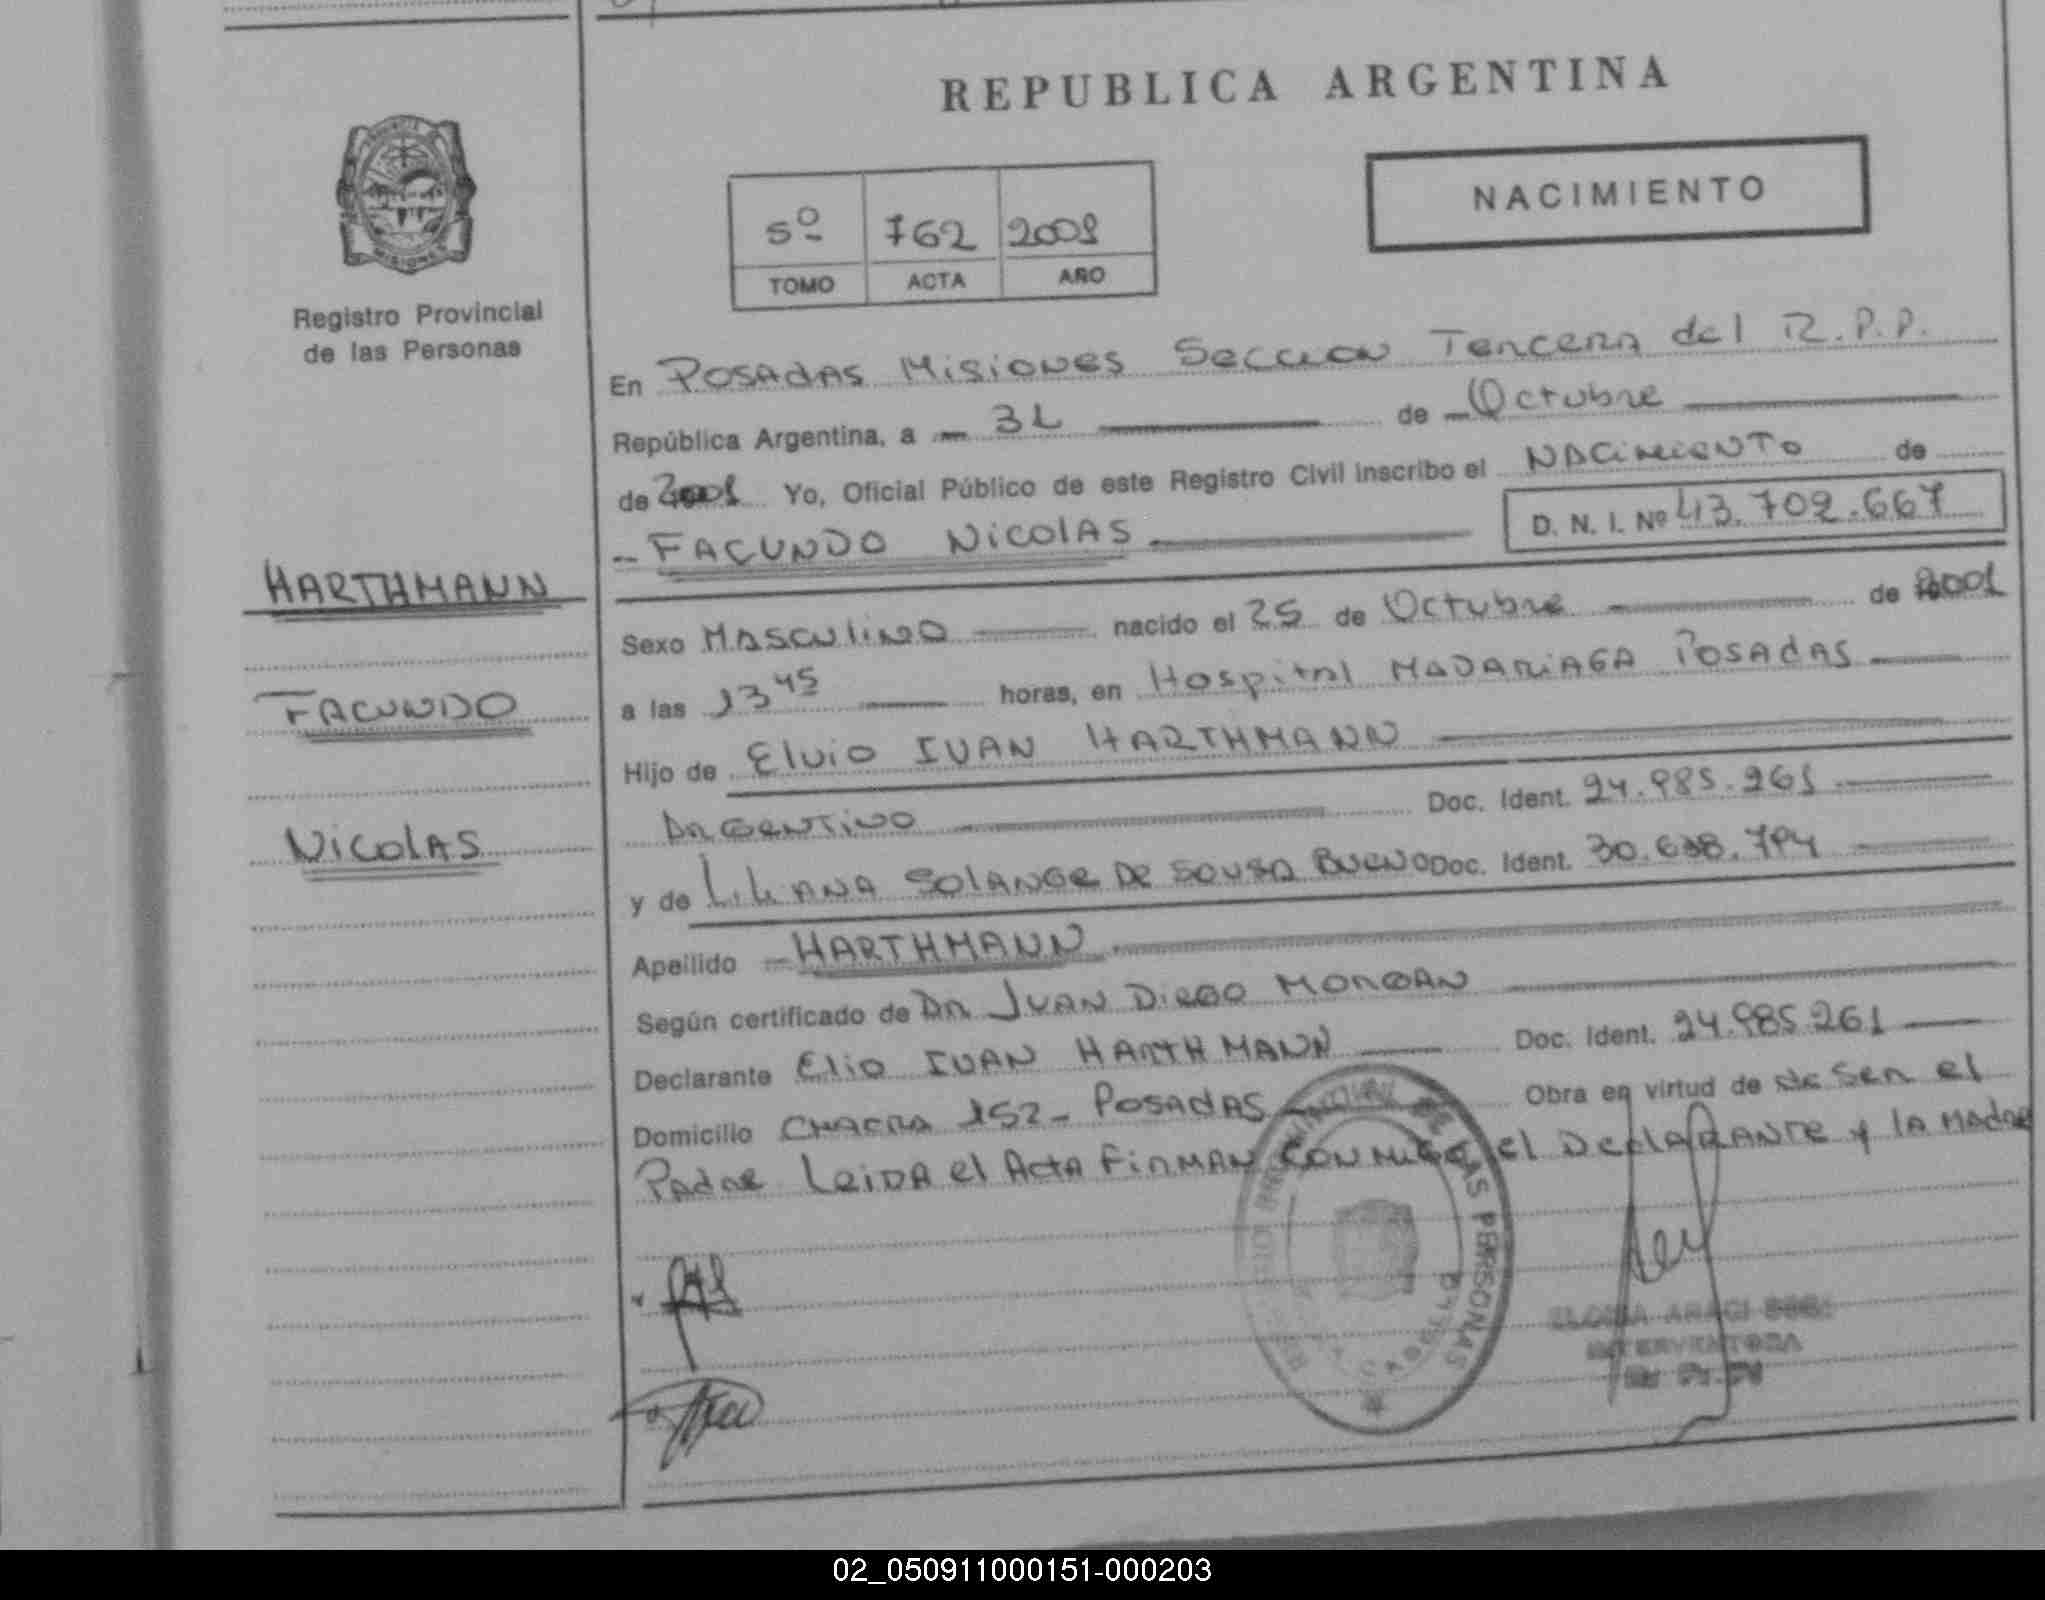 REPUBLICA ARGENTINA
NACIMIENTO
5º 762 2001
TOMO ACTA AÑO
Registro Provincial
de las Personas
En Posadas Misiones Seccion Tercera del R.P.P.
República Argentina, a 31 de Octubre
de 2001 Yo, Oficial Público de este Registro Civil inscribo el Nacimiento de
FACUNDO NicolAS D. N. I. Nº 43.702.667
HARTHMANN
FACUNDO
NicolAS
Sexo Masculino nacido el 25 de Octubre de 2001
a las 13 45 horas, en Hospital MADARiAGA Posadas
Hijo de Elvio IVAN HARTHMANN
Argentino Doc. Ident. 24.985.261
y de Liliana Solange De Sousa Bueno Doc. Ident. 30.638.794
Apellido HARTHMANN
Según certificado de Dr Juan Diego Morgan
Declarante Elio IVAN HARTHMANN Doc. Ident. 24.985.261
Domicilio Chacra 152 - Posadas Obra en virtud de de Ser el
Padre Leida el Acta Firman conmigo el Declarante y la Madre
DE LAS PERSONAS
INTERVENTORA
02_050911000151-000203